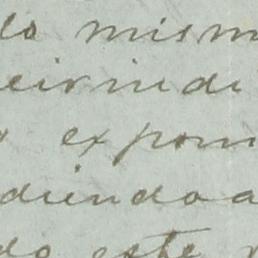 do mism
eivindi
expon
diendo a
do este